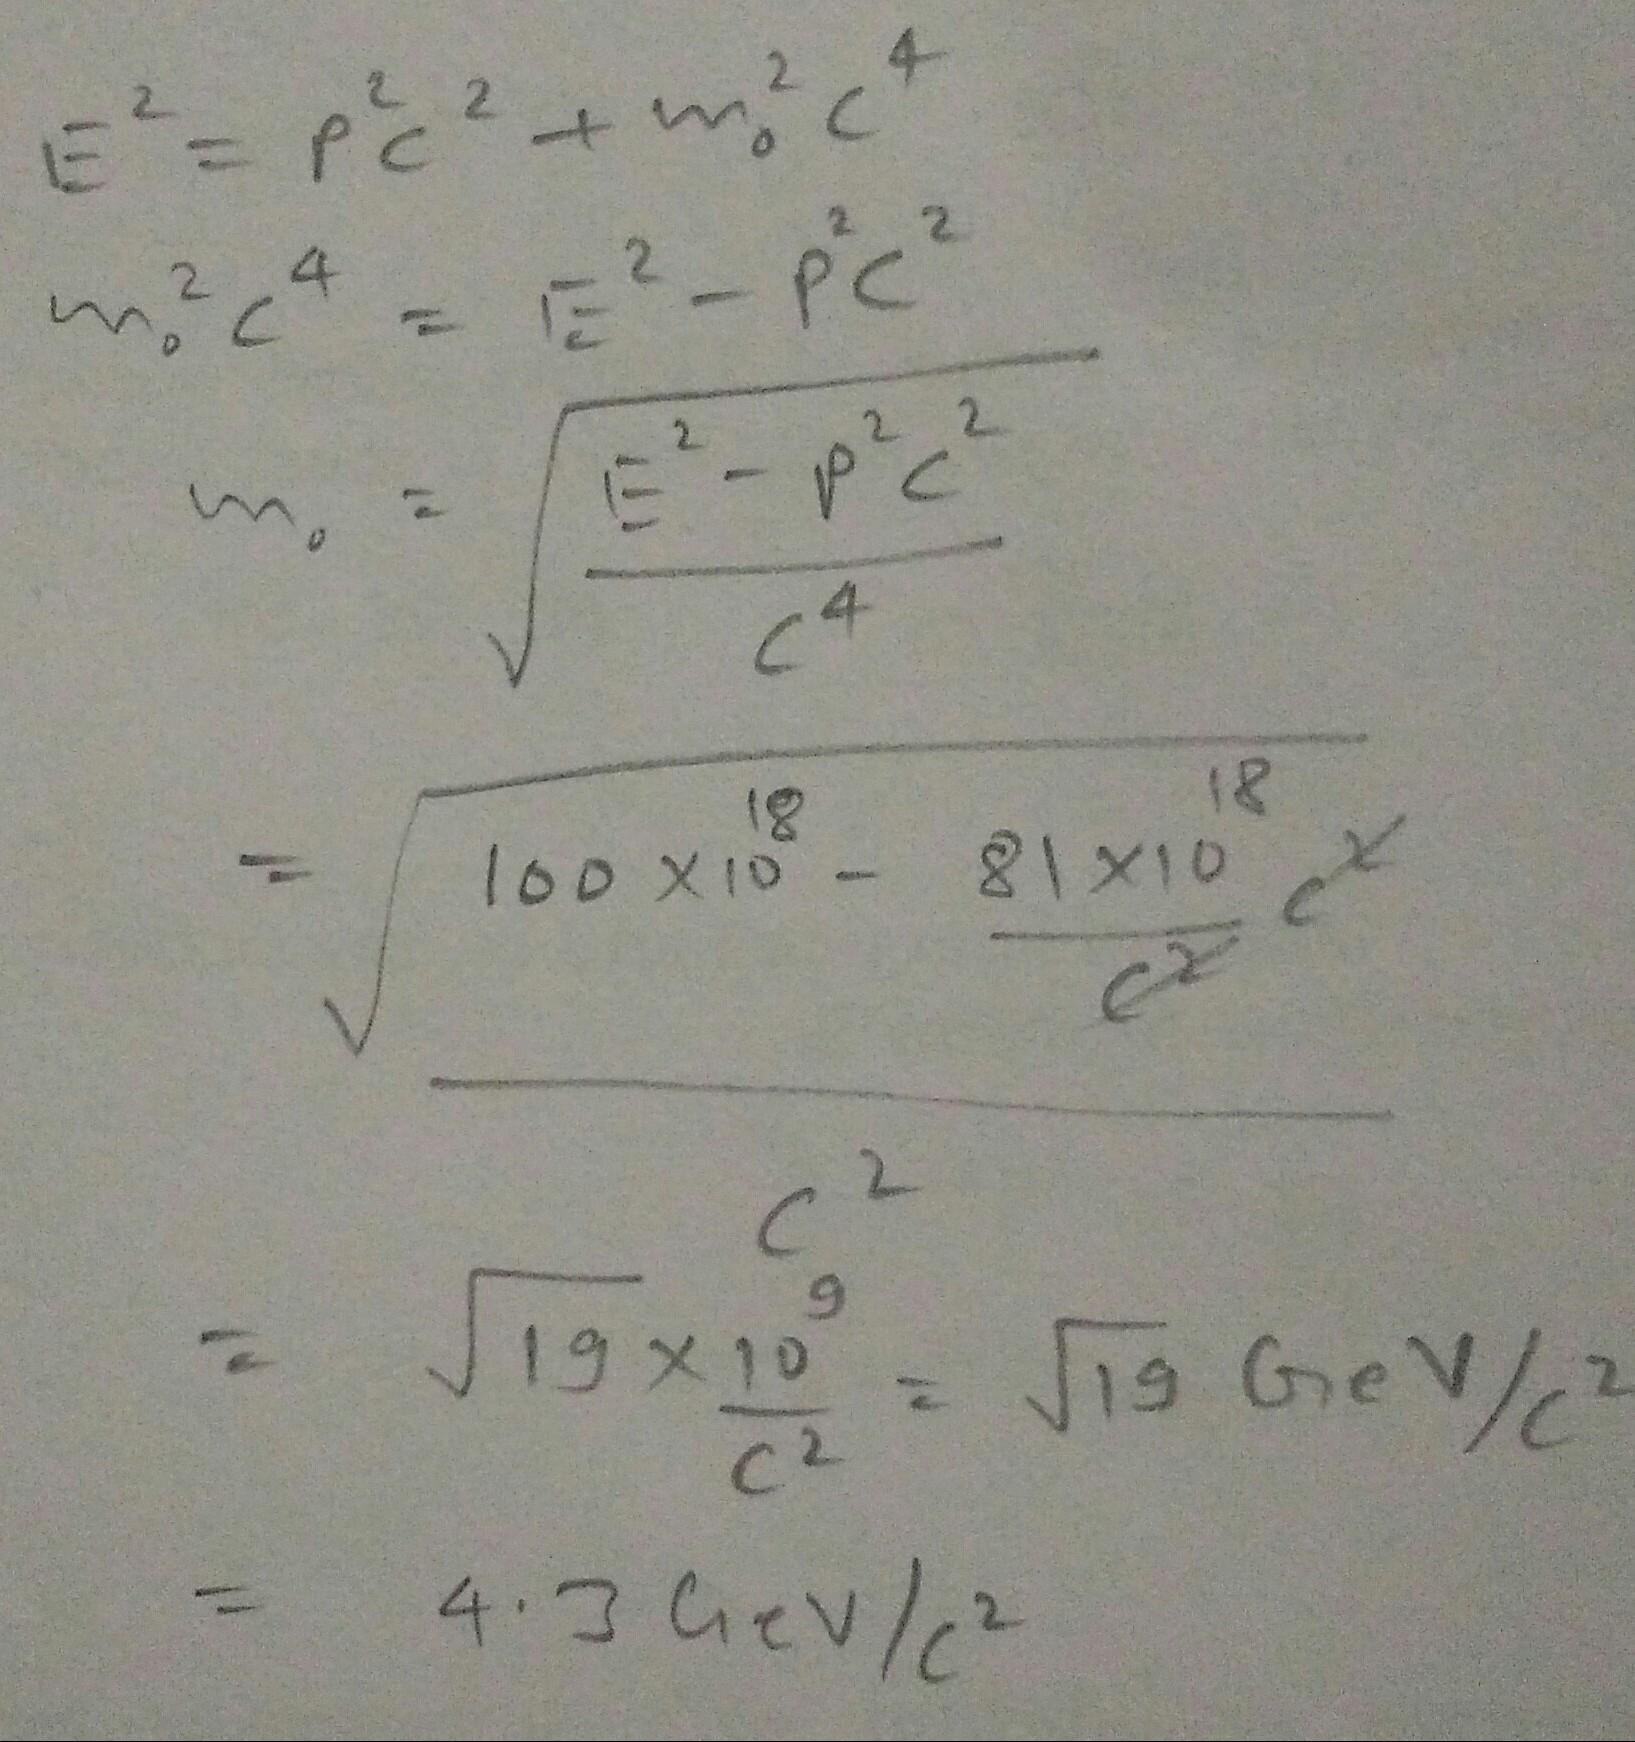 E² = P²C² + m₀²C⁴
m₀²C⁴ = E² - P²C²
m₀ = √((E² - P²C²)/C⁴)
= √(100 × 10¹⁸ - (81 × 10¹⁸/C²) C²)/C²
= √19 × 10⁹/C² = √19 GeV/C²
= 4.3 GeV/C²